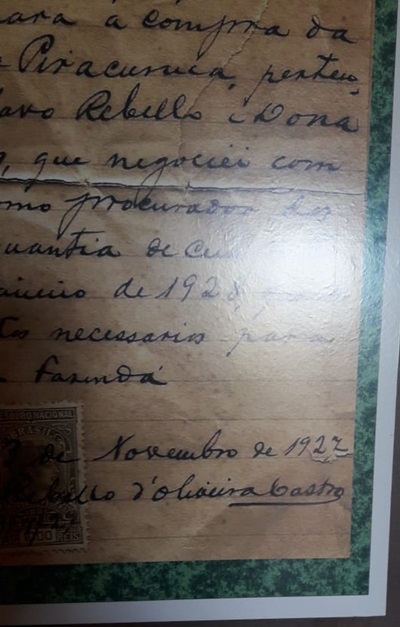 para a compra da
Piracuruca, perten
Rebello e Dona
que negociei com
omo procurador dos
quantia de
aneiro de 1928
tos necessarios para
Fazenda
de Novembro de 1927
Rebello d'Oliveira Castro
NACIONAL
BRASIL
REIS